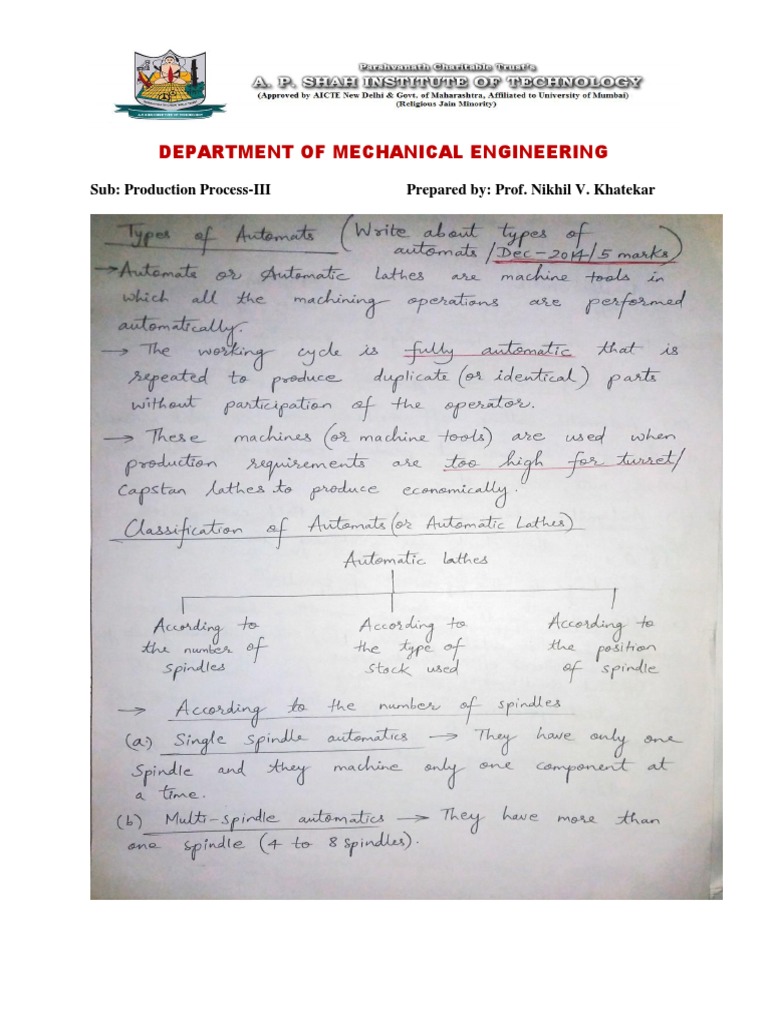 Parshvanath Charitable Trust's
A. P. SHAH INSTITUTE OF TECHNOLOGY
(Approved by AICTE New Delhi & Govt. of Maharashtra, Affiliated to University of Mumbai)
(Religious Jain Minority)
DEPARTMENT OF MECHANICAL ENGINEERING
Sub: Production Process-III Prepared by: Prof. Nikhil V. Khatekar
Types of Automats (Write about types of
automats / Dec-2014/5 marks)
→ Automats or Automatic lathes are machine tools in
which all the machining operations are performed
automatically.
→ The working cycle is fully automatic that is
repeated to produce duplicate (or identical) parts
without participation of the operator.
→ These machines (or machine tools) are used when
production requirements are too high for turret/
Capstan lathes to produce economically.
Classification of Automats (or Automatic Lathes)
Automatic lathes
According to According to According to
the number of the type of the position
spindles stock used of spindle
→ According to the number of spindles
(a) Single spindle automatics → They have only one
spindle and they machine only one component at
a time.
(b) Multi-spindle automatics → They have more than
one spindle (4 to 8 spindles).